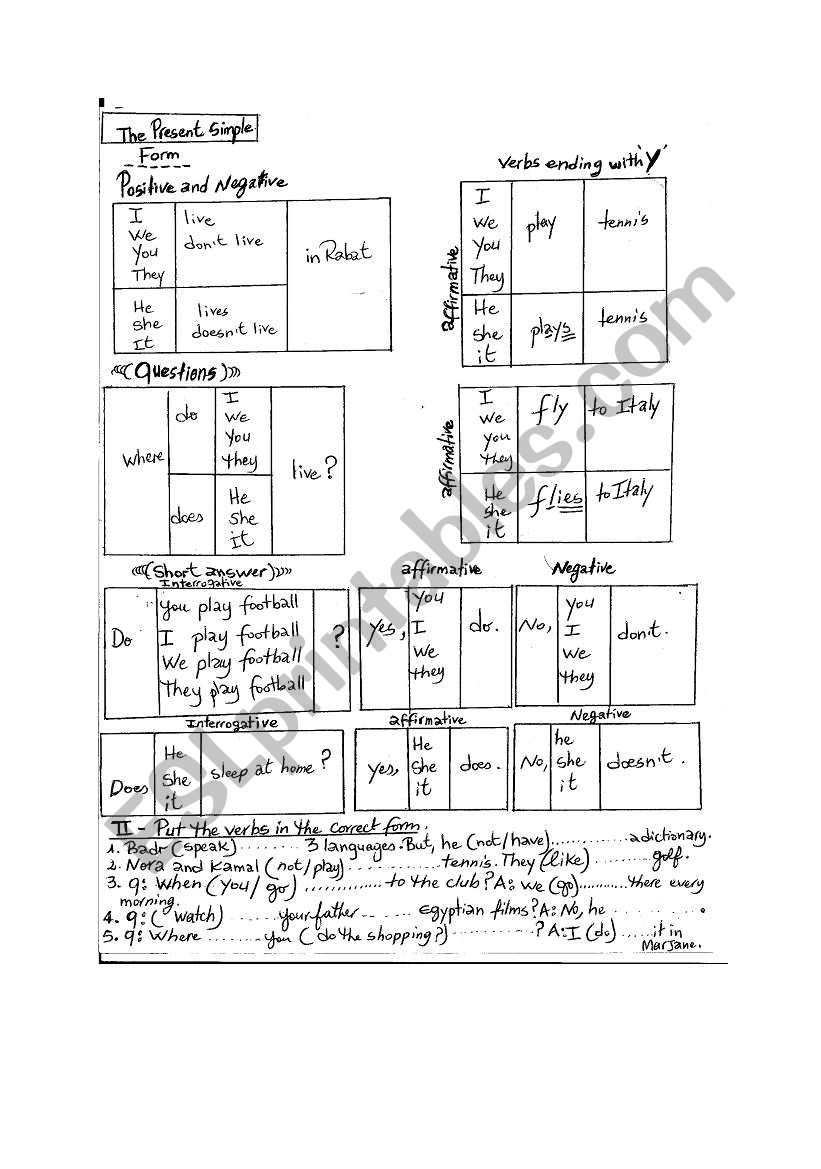 The Present Simple
Form
Positive and Negative
I
We
You
They
live
don't live
in Rabat
He
she
It
lives
doesn't live
Verbs ending with 'y'
affirmative
I
We
You
They
play
tennis
He
She
it
plays
tennis
(((Questions)))
where
do
I
We
You
they
live?
does
He
She
it
affirmative
I
we
you
they
fly
to Italy
He
she
it
flies
to Italy
(((Short answer))))
Interrogative
Do
You play football
I play football
We play football
They play football
?
affirmative
Yes,
You
I
We
they
do.
Negative
No,
You
I
We
they
don't.
Interrogative
Does
He
She
it
sleep at home?
affirmative
Yes,
He
She
it
does.
Negative
No,
he
she
it
doesn't.
II - Put the verbs in the correct form.
1. Badr (speak) ........ 3 languages. But, he (not/have) ............ a dictionary.
2. Nora and Kamal (not/play) ............ tennis. They (like) ........ golf.
3. q: When (you/go) ............ to the club? A: we (go) ........... there every
morning.
4. q: (watch) ........ your father ...... Egyptian films? A: No, he ........ .
5. q: Where ........ you (do the shopping?) ............ ? A: I (do) ...... it in
Marjane.
ESLprintables.com